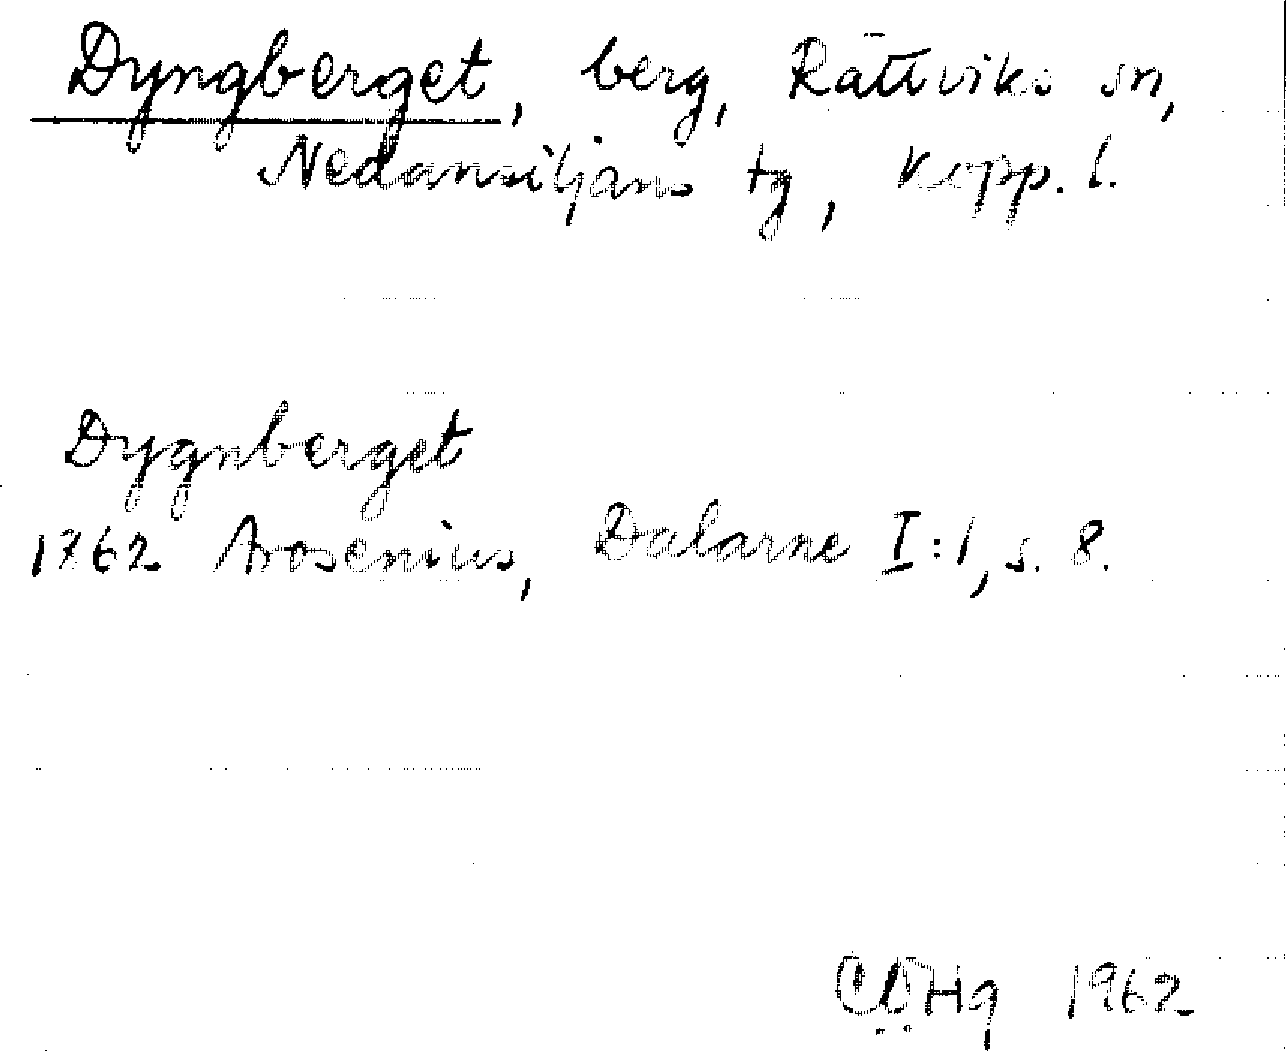 Dyngberget, berg, Rättviks sn,
Nedansiljans tg, Kopp. l.
Dygnberget
1762 Arosenius, Dalarne I:1, s. 8.
CÖHg 1962